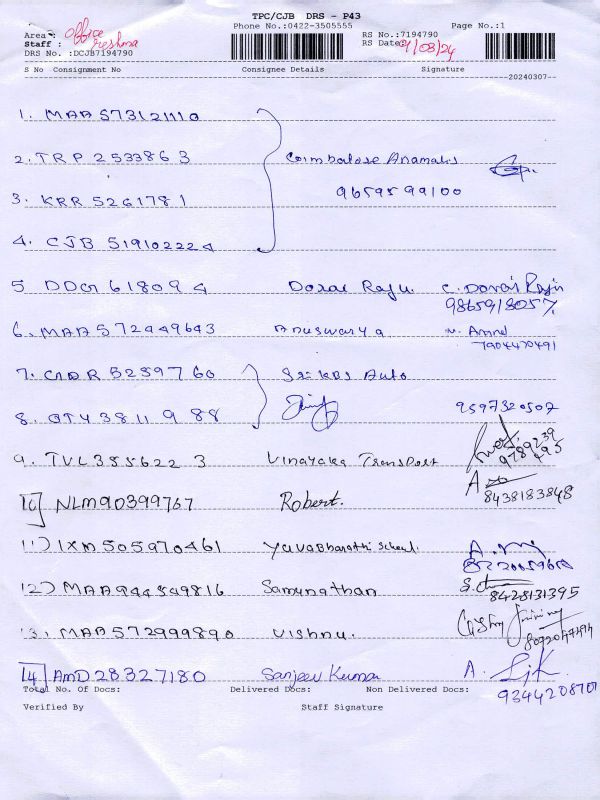 TPC/CJB DRS - P43
Phone No.:0422-3505555 Page No.:1
Area : office
Staff : reshma
DRS No. :DCJB7194790
RS No.:7194790
RS Date: 9/08/24
S No Consignment No Consignee Details Signature
20240307
1. MAA573121110
2. TRP 2533863 Coimbatore Anamalis
3. KRR 5261781 9659599100
4. CJB 519102224
5 DDG 618094 Dorai Raju. C. Dorai Raju
9865918057
6. MAA572449643 Anuswarya
7904470491
7. CNDR5259760 Sri KBS Auto
8. OTY 3811988 9597320507
9. TVL385622 3 Vinayaka Transport 9789239495
10 NLM90399767 Robert. 8438183848
11) IXM505970461 Yuvabharathi School.
12) MAA944549816 Samynathan
8428131395
13. MAA572999890 Vishnu.
14 AMD28327180 Sanjeev Kumar A. SjK
Total No. Of Docs: Delivered Docs: Non Delivered Docs:
9344208707
Verified By Staff Signature